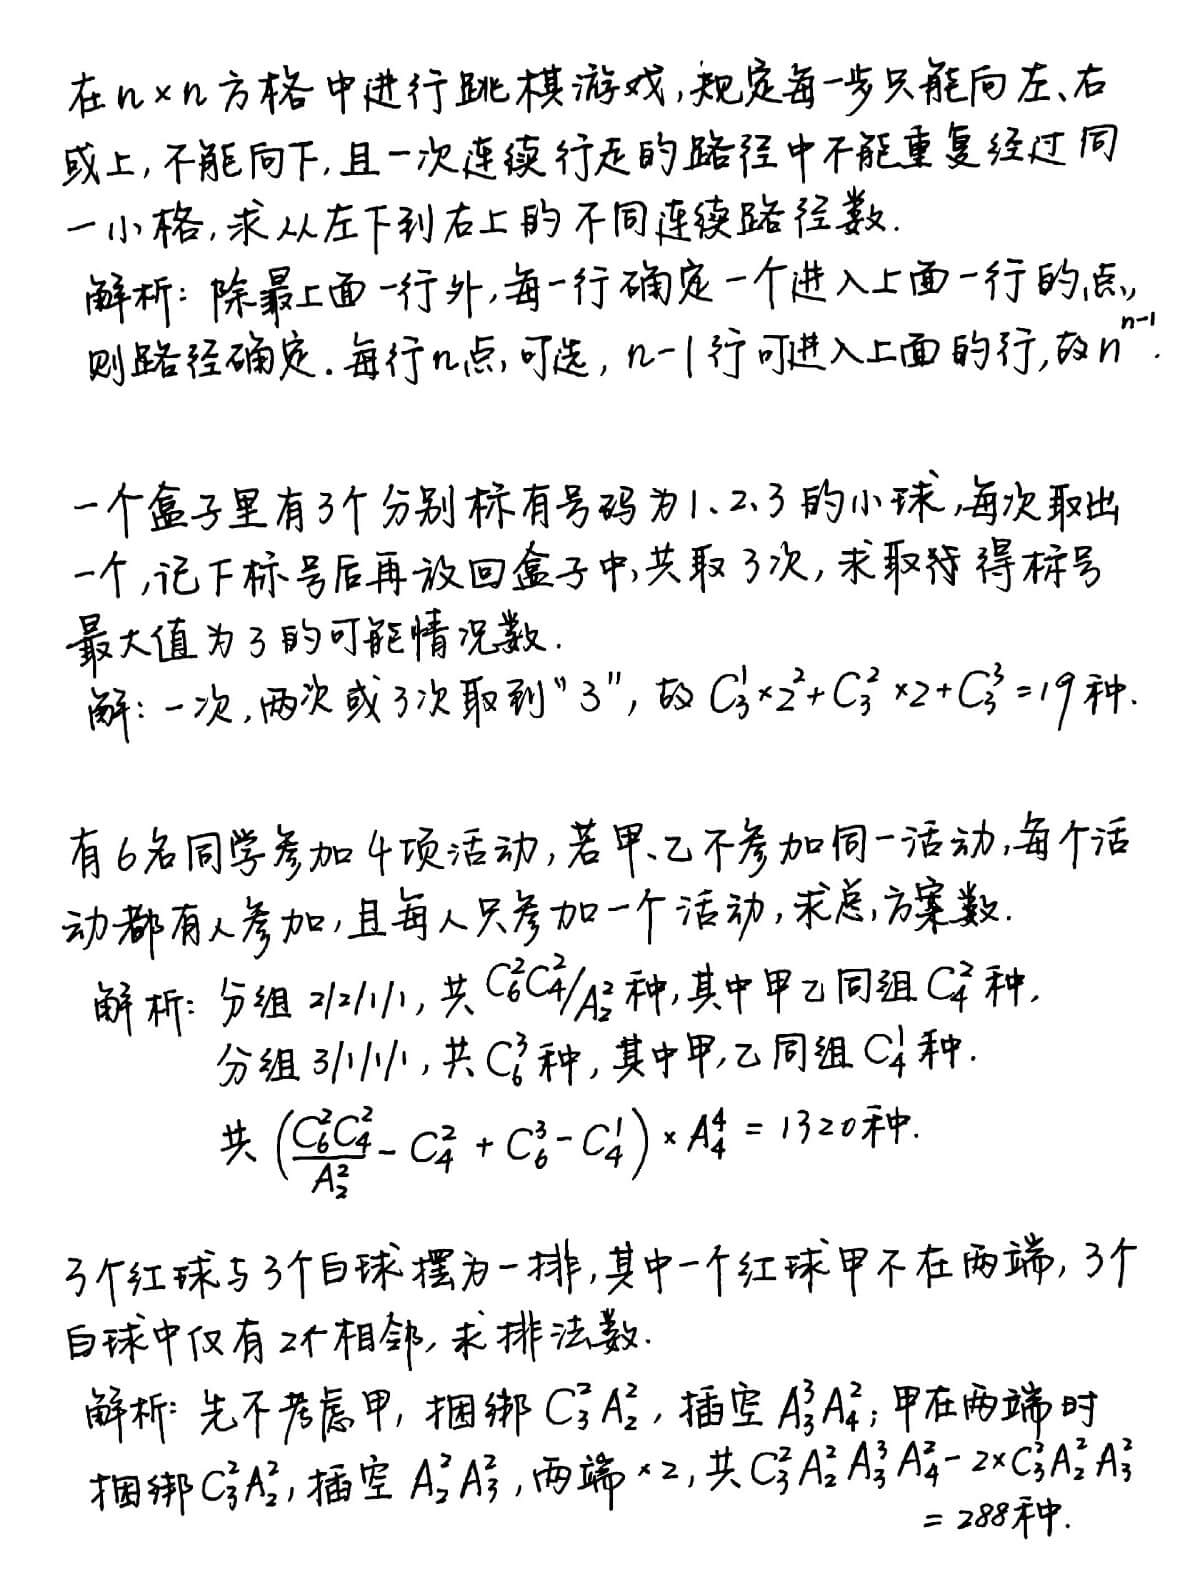 在n×n方格中进行跳棋游戏,规定每一步只能向左、右
或上,不能向下,且一次连续行走的路径中不能重复经过同
一小格,求从左下到右上的不同连续路径数.
解析:除最上面一行外,每一行确定一个进入上面一行的点,
则路径确定.每行n点可选,n-1行可进入上面的行,故n^{n-1}.
一个盒子里有3个分别标有号码为1、2、3的小球,每次取出
一个,记下标号后再放回盒子中,共取3次,求取得标号
最大值为3的可能情况数.
解:一次,两次或3次取到"3",故C_3^1×2^2+C_3^2×2+C_3^3=19种.
有6名同学参加4项活动,若甲、乙不参加同一活动,每个活
动都有人参加,且每人只参加一个活动,求总方案数.
解析:分组2/2/1/1,共C_6^2C_4^2/A_2^2种,其中甲乙同组C_4^2种,
分组3/1/1/1,共C_6^3种,其中甲,乙同组C_4^1种.
共(\frac{C_6^2C_4^2}{A_2^2}-C_4^2+C_6^3-C_4^1)×A_4^4=1320种.
3个红球与3个白球摆为一排,其中一个红球甲不在两端,3个
白球中仅有2个相邻,求排法数.
解析:先不考虑甲,捆绑C_3^2A_2^2,插空A_3^3A_4^2;甲在两端时
捆绑C_3^2A_2^2,插空A_2^2A_3^2,两端×2,共C_3^2A_2^2A_3^3A_4^2-2×C_3^2A_2^2A_3^2
=288种.